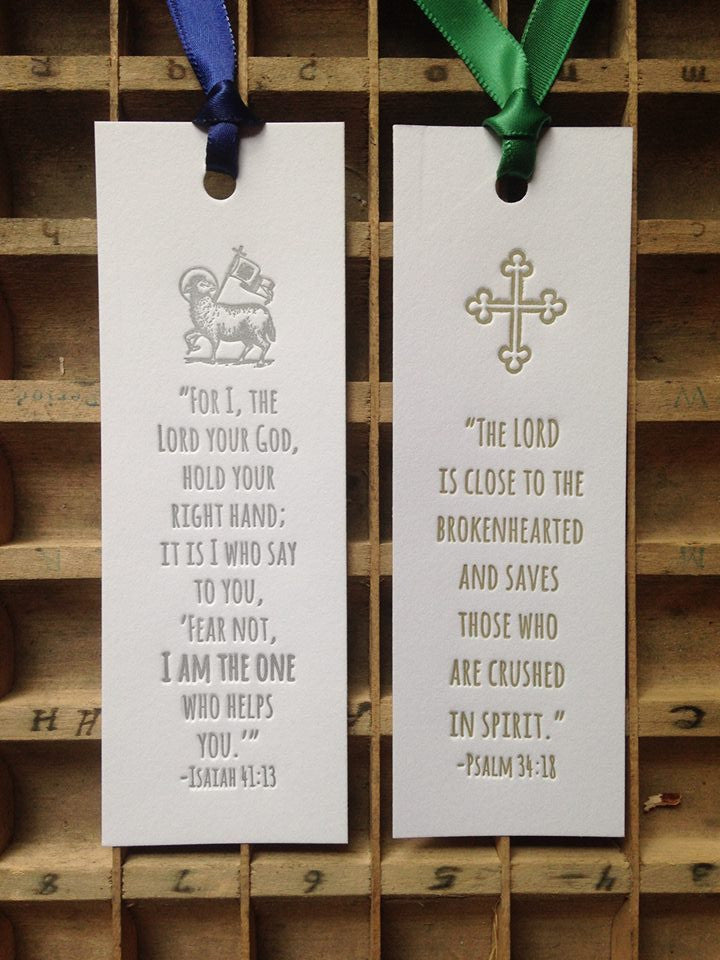 “For I, the
Lord your God,
hold your
right hand;
it is I who say
to you,
‘Fear not,
I am the one
who helps
you.’”
-Isaiah 41:13
“The LORD
is close to the
brokenhearted
and saves
those who
are crushed
in spirit.”
-Psalm 34:18
H H
8 7 6 5 4